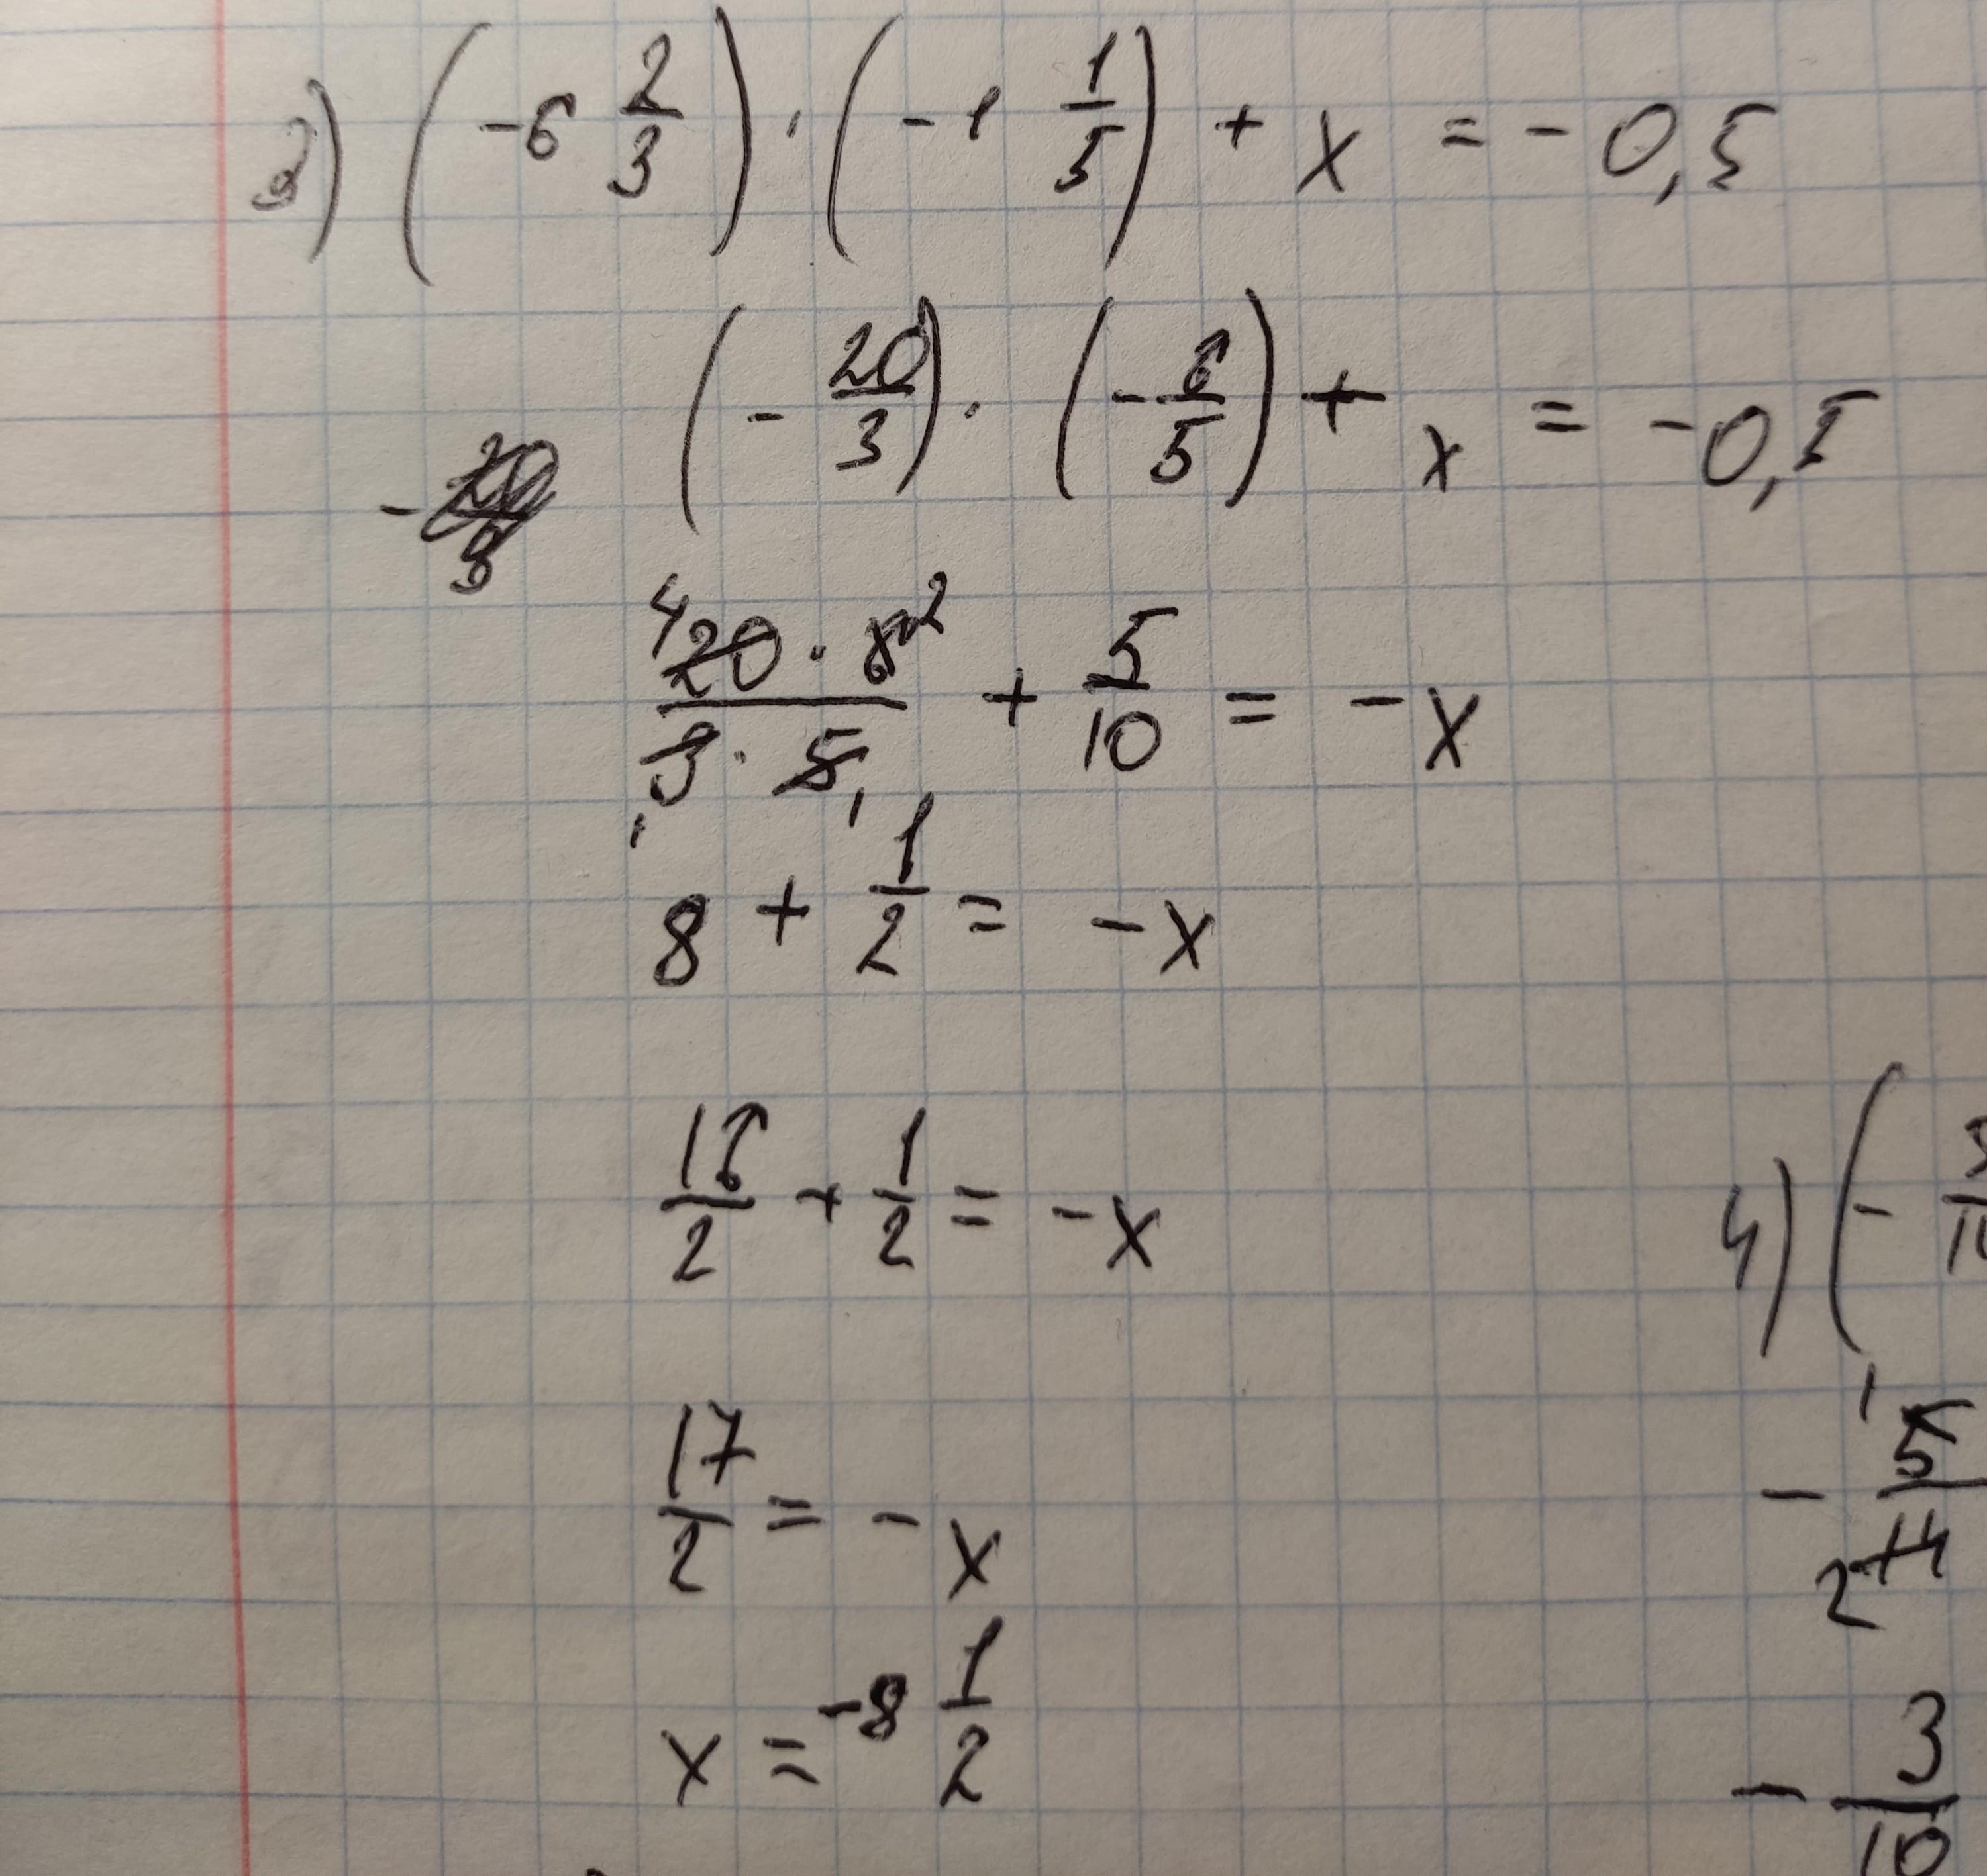 3) (-6 2/3) · (-1 1/5) + x = -0,5
(-20/3) · (-6/5) + x = -0,5
-20/3
4 20 · 6 2 / 1 3 · 5 1 + 5/10 = -x
8 + 1/2 = -x
16/2 + 1/2 = -x
17/2 = -x
x = -8 1/2
4) (-
1 5
- —
2 14
- 3/10